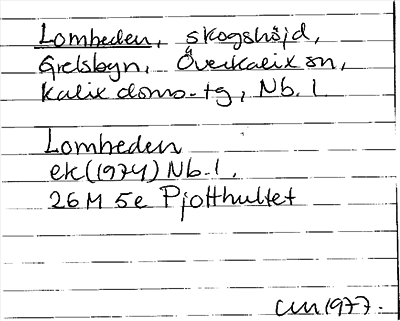 Lomheden, skogshöjd,
Grelsbyn, Överkalix sn,
Kalix doms-tg, Nb. l.
Lomheden
ek (1974) Nb. l.
26 M 5e Pjotthultet
CM 1977.